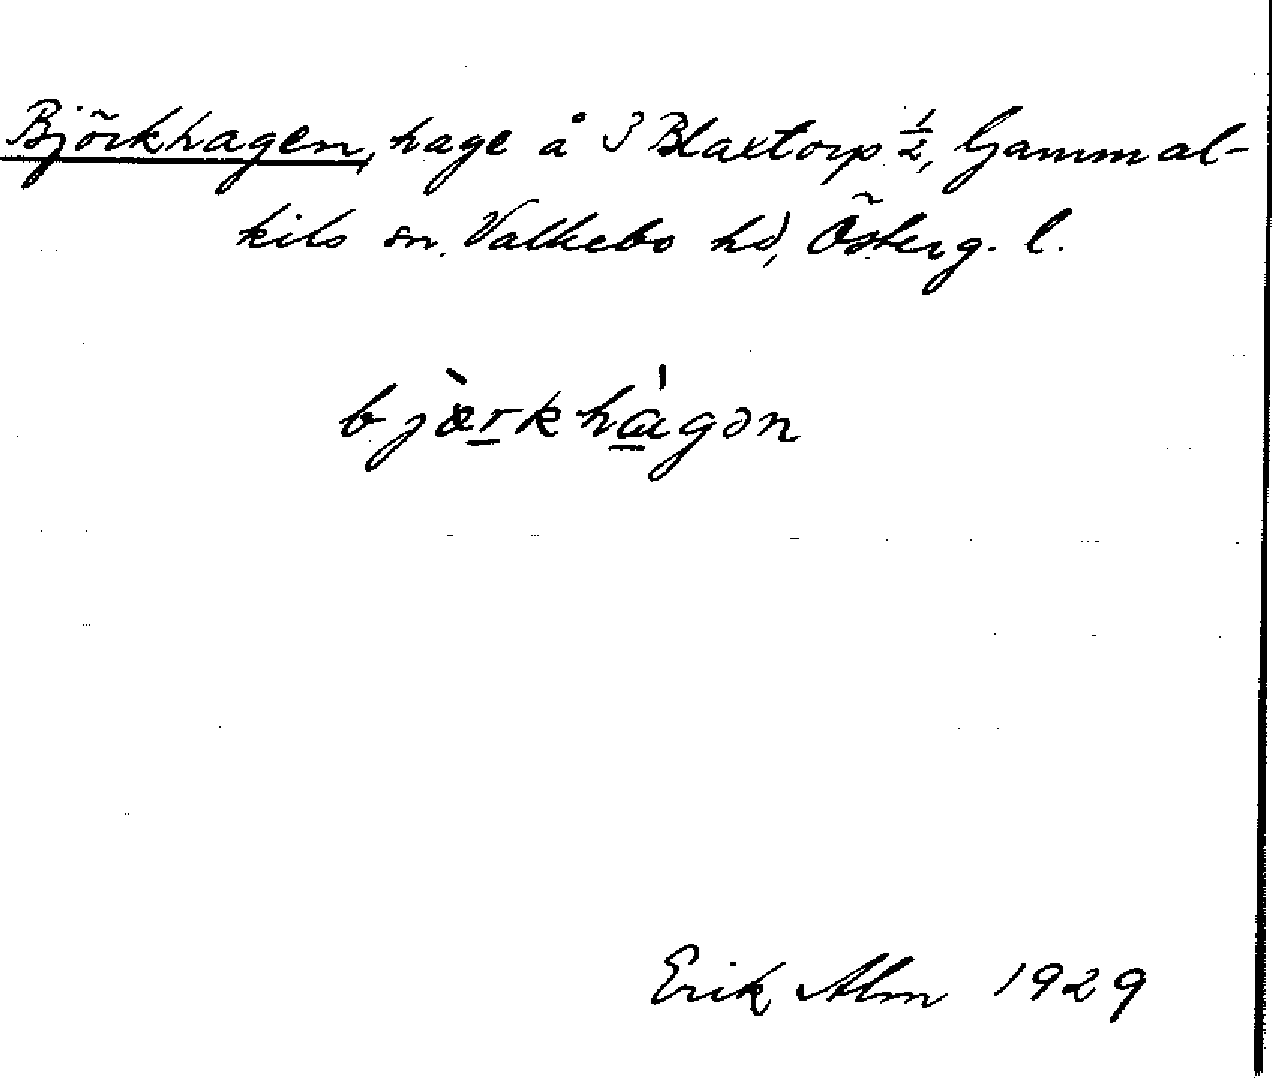 Björkhagen, hage å S Blaxtorp ½, Gammal-
kils sn. Valkebo hd, Österg. l.
bjæ̀rkhàgən
Erik Alm 1929